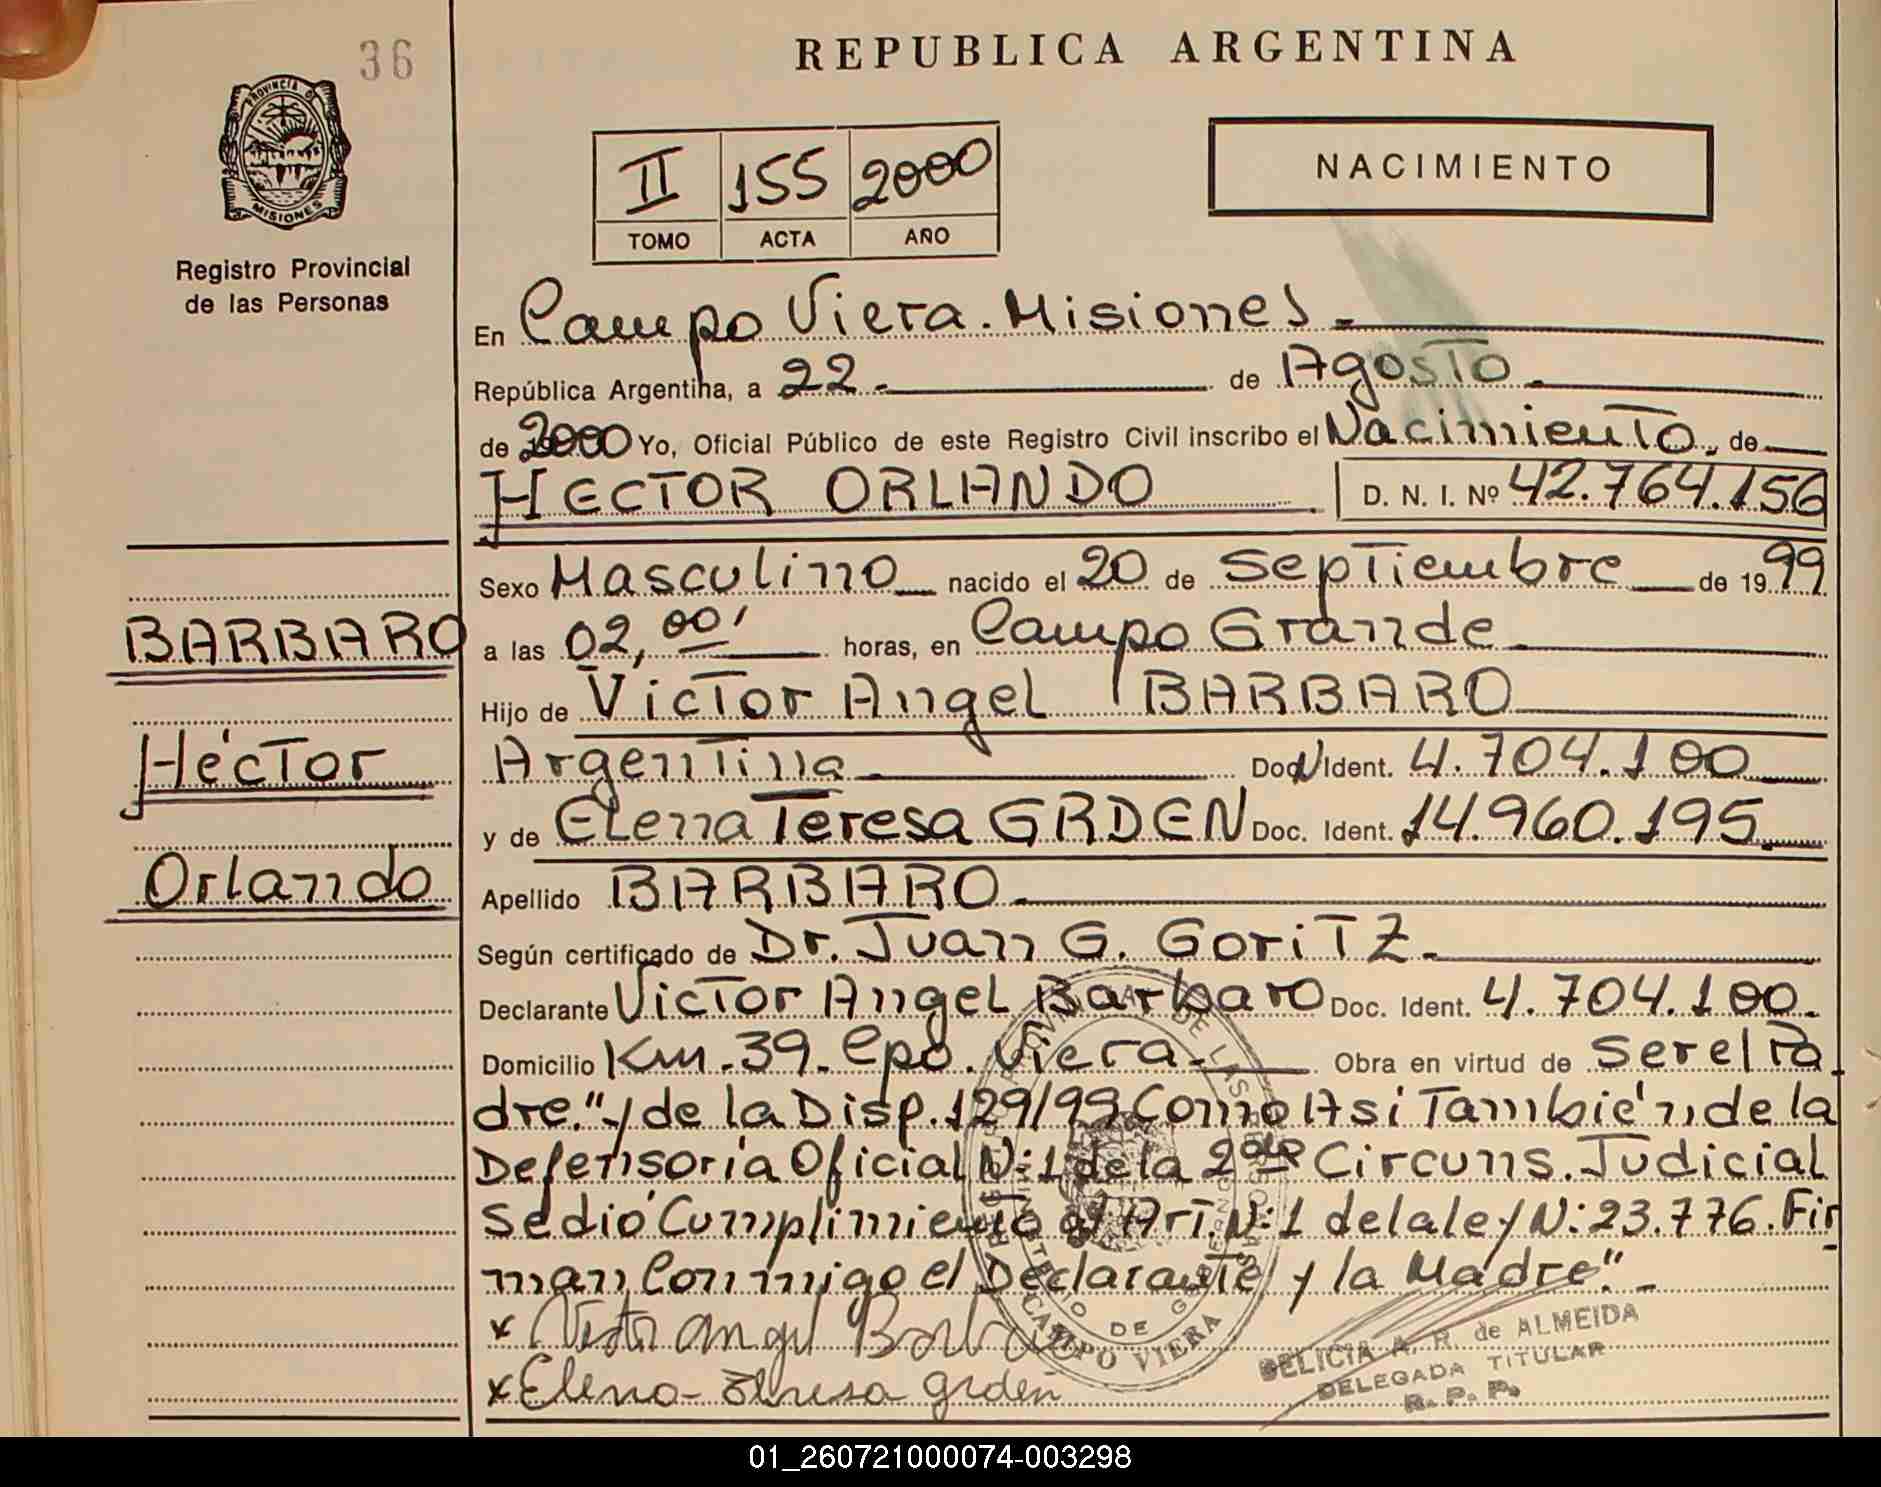 36
REPUBLICA ARGENTINA
PROVINCIA D
MISIONES
Registro Provincial
de las Personas
II 155 2000
TOMO ACTA AÑO
NACIMIENTO
En Campo Viera. Misiones.
República Argentina, a 22. de Agosto.
de 2000 Yo, Oficial Público de este Registro Civil inscribo el Nacimiento, de
HECTOR ORLANDO D. N. I. Nº 42.764.156
Sexo Masculino nacido el 20 de Septiembre de 1999
BARBARO
a las 02,00' horas, en Campo Grande
Hijo de Victor Angel BARBARO
Héctor
Argentina Doc N Ident. 4.704.100
y de Elena Teresa GRDEN Doc. Ident. 14.960.195
Orlando
Apellido BARBARO
Según certificado de Dr. Juan G. GoriTZ.
Declarante Victor Angel Barbaro Doc. Ident. 4.704.100.
Domicilio Km. 39. Cpo. Viera. Obra en virtud de Ser el Pa
dre." y de la Disp. 129/99 Como Asi También de la
Defensoría Oficial N:1 de la 2da Circuns. Judicial
Se dió Cumplimiento al Art. N:1 de la ley N: 23.776. Fir
man Conmigo el Declarante y la Madre".
x Victor Angel Barbaro
x Elena Teresa Grden
CAMPO VIERA
DELICIA A. R. de ALMEIDA
DELEGADA TITULAR
R. P. P.
01_260721000074-003298